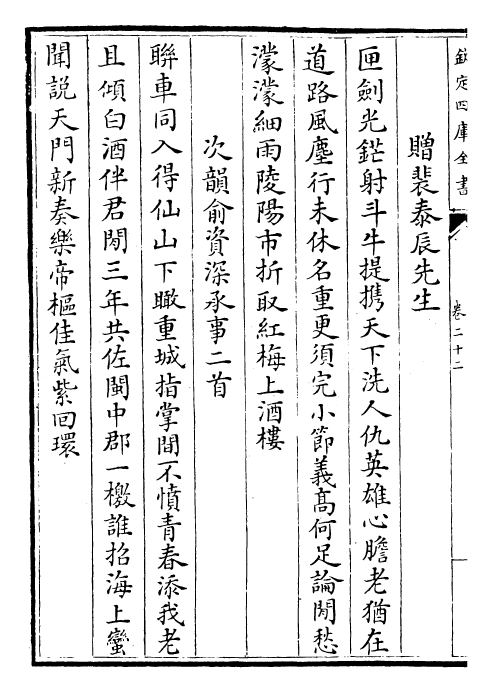 欽定四庫全書
卷二十二
贈裴泰辰先生
匣劍光鋩射斗牛提携天下洗人仇英雄心膽老猶在
道路風塵行未休名重更須完小節義髙何足論閒愁
濛濛細雨陵陽市折取紅梅上酒樓
次韻俞資深承事二首
聯車同入得仙山下瞰重城指掌間不憤青春添我老
且傾白酒伴君閒三年共佐閩中郡一檄誰招海上蠻
聞說天門新奏樂帝樞佳氣紫回環